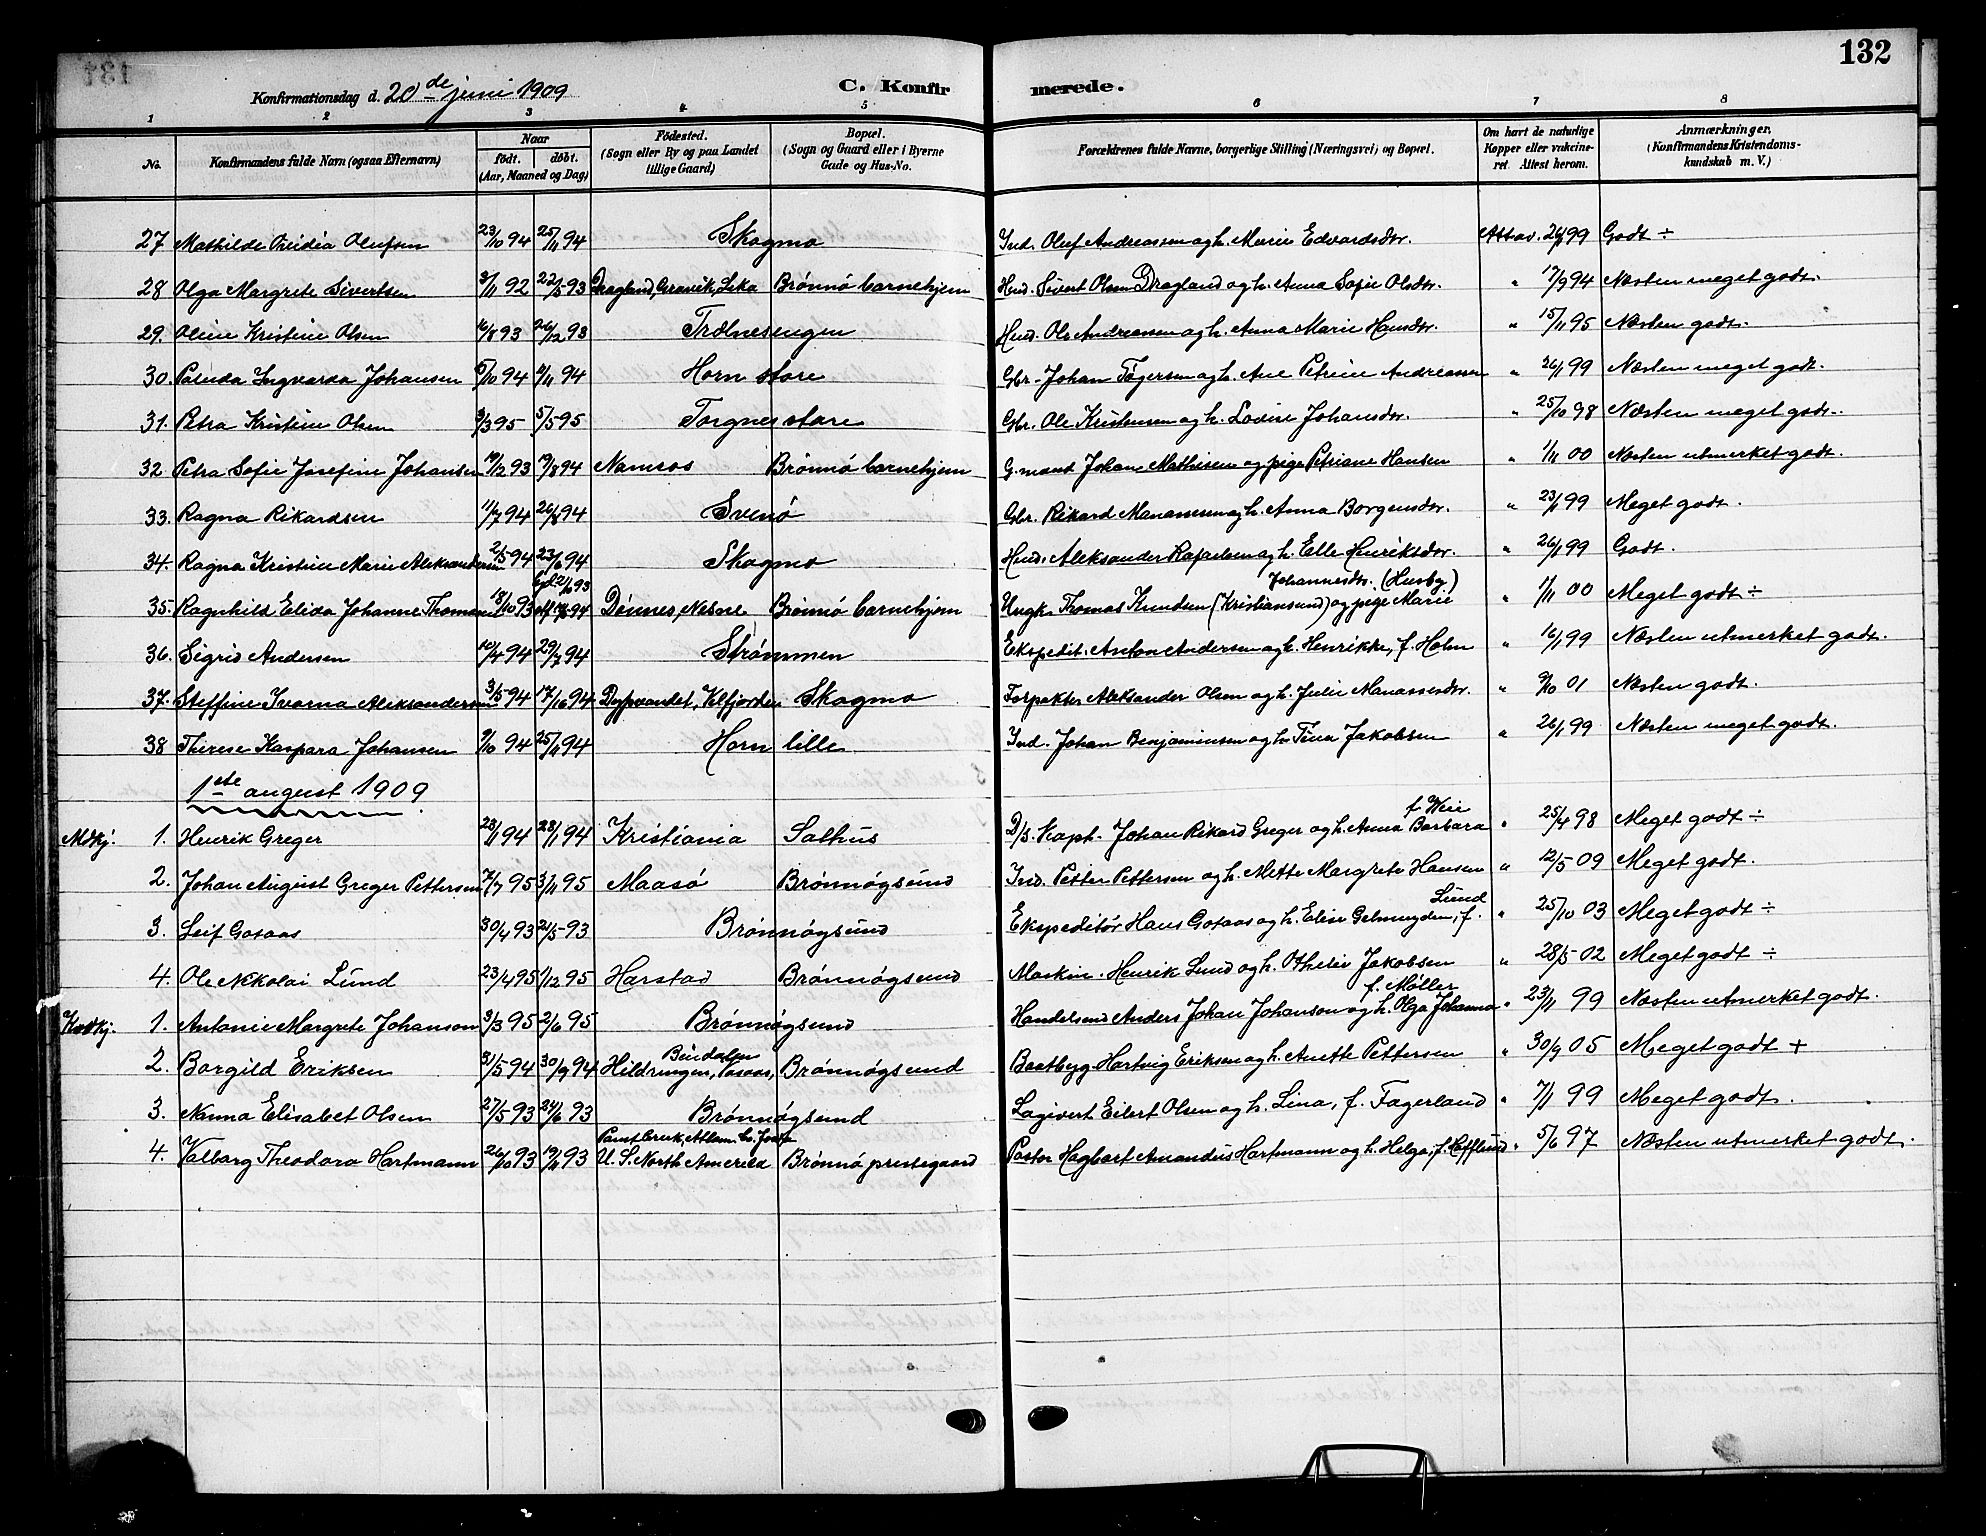 132
Konfirmationsdag d. 20de juni 1909
C. Konfirmerede.
1 2 3 4 5 6 7 8
No.
Konfirmandens fulde Navn (ogsaa Efternavn)
Naar
født. døbt.
(Aar, Maaned og Dag)
Fødested.
(Sogn eller By og paa Landet
tillige Gaard)
Bopæl.
(Sogn og Gaard eller i Byerne
Gade og Hus-No.
Forældrenes fulde Navne, borgerlige Stilling (Næringsvei) og Bopæl.
Om havt de naturlige
Kopper eller vakcine-
ret. Attest herom.
Anmærkninger,
(Konfirmandens Kristendoms-
kundskab m. V.)
27 Mathilde Olufsen 23/10 94 25/11 94 Skogmo Ind. Oluf Andreassen og h. Marie Edvardsdtr. 99 Godt ÷
28 Olga Margrete Sivertsen 3/11 92 22/5 93 Dragland, Gravik, Leka Brønnø barnehjem Hmd. Sivert Olsen Dragland og h. Anna Sofie Olsdtr. " 17/9 94 Næsten meget godt.
29. Oline Kristine Olsen 16/8 93 26/12 93 Trælnesengen Hmd. Ole Andreassen og h. Anna Marie Hansdtr. " 15/11 95 Næsten godt.
30. Paluda Ingvarda Johansen 5/10 94 11/11 94 Horn store Gbr. Johan Tøgersen og h. Ane Petrine Andreassen " 26/1 99 Næsten meget godt.
31. Petra Kristine Olsen 3/3 95 5/5 95 Torgnes store Gbr. Ole Kristensen og h. Lovise Johansdtr. " 25/10 98 Næsten meget godt.
32 Petra Sofie Josefine Johansen 19/12 93 19/8 94 Namsos Brønnø barnehjem G.mand Johan Mathisen og pige Petriane Hansen " 1/11 00 Næsten utmerket godt.
33. Ragna Rikardsen 11/7 94 26/8 94 Svenø Gbr. Rikard Manassesen og h. Anna Borgensdtr. " 23/1 99 Meget godt.
34. Ragna Kristine Marie Aleksandersen 2/5 94 23/6 94 Skogmo Hmd. Aleksander Rafaelsen og h. Elle Henriksdtr. " 26/1 99 Godt.
35. Ragnhild Elida Johanne Thomassen 18/10 93 94 Dønnes, Nesne Brønnø barnehjem Ungk. Thomas Knudsen (Kristiansund) og pige Marie Johannesdtr. (Husby) " 1/11 00 Meget godt ÷
36. Sigrid Andersen 10/4 94 29/7 94 Strømmen Ekspedit. Anton Andersen og h. Henrikke, f. Holm " 16/1 99 Næsten utmerket godt.
37. Steffine Ivarna Aleksandersen 3/5 94 17/10 94 Dypvandet, Velfjorden Skogmo Forpakter Aleksander Olsen og h. Julie Manassesdtr. " 9/10 01 Næsten godt.
38 Therese Kaspara Johansen 9/10 94 25/11 94 Horn lille Ind. Johan Benjaminsen og h. Tina Jakobsen " 26/1 99 Næsten meget godt.
1ste august 1909
Mdkj. 1. Henrik Greger 94 94 Kristiania Salhus D/s. Kapt. Johan Rikard Greger og h. Anna Barbara " 25/4 98 Meget godt ÷
2. Johan August Greger Pettersen 7/7 95 3/11 95 Maasø Brønnøysund Ind. Petter Pettersen og h. Mette Margrete Hansen " 12/5 09 Meget godt.
3. Leif Gotaas 30/4 93 21/5 93 Brønnøysund Ekspeditør Hans Gotaas og h. Elise Gelmuyden, f. Lund " 25/10 03 Meget godt ÷
4. Ole Nikolai Lund 23/4 95 1/12 95 Harstad Brønnøysund Maskin. Henrik Lund og h. Othelie Jakobsen " 28/5 02 Meget godt ÷
Kvdkj. 1. Antonie Margrete Johanson 3/3 95 2/6 95 Brønnøysund Handelsmd Anders Johan Johanson og h. Olga Johanna f. Møller " 23/11 99 Næsten utmerket godt.
2. Borgild Eriksen 31/5 94 30/9 94 Hildringen, Bindalen Brønnøysund Baatbyg. Hartvig Eriksen og h. Anette Pettersen " 30/9 05 Meget godt +
3. Nanna Elisabet Olsen 27/5 93 24/6 93 Brønnøysund Logivert Eilert Olsen og h. Lina, f. Fagerland " 7/1 99 Meget godt.
4. Valborg Theodora Hartmann 26/10 93 19/11 93 U. S. North Amerika Brønnø prestegaard Pastor Hagbart Amandus Hartmann og h. Helga, f. " 5/6 97 Næsten utmerket godt.